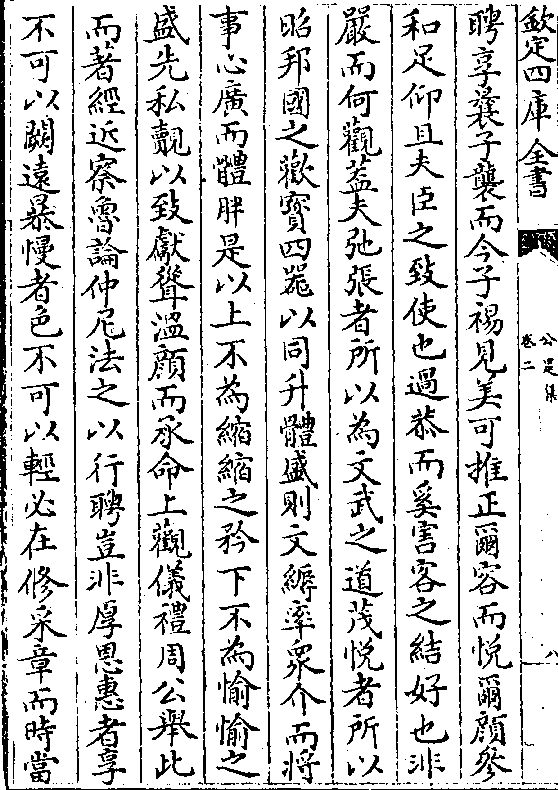 欽定四庫全書
公是集
卷二
八
聘享曩子襲而今子裼見美可推正爾容而悦爾顔發
和足仰且夫臣之致使也過恭而奚害客之結好也非
嚴而何觀葢夫弛張者所以為文武之道茂悦者所以
昭邦國之歡寳四器以同升體盛則文縟率衆介而將
事心廣而體胖是以上不為縮縮之矜下不為愉愉之
盛先私覿以致獻聳温顔而承命上觀儀禮周公舉此
而著經近察魯論仲尼法之以行聘豈非厚恩惠者享
不可以闕遠暴慢者色不可以輕必在修采章而時當